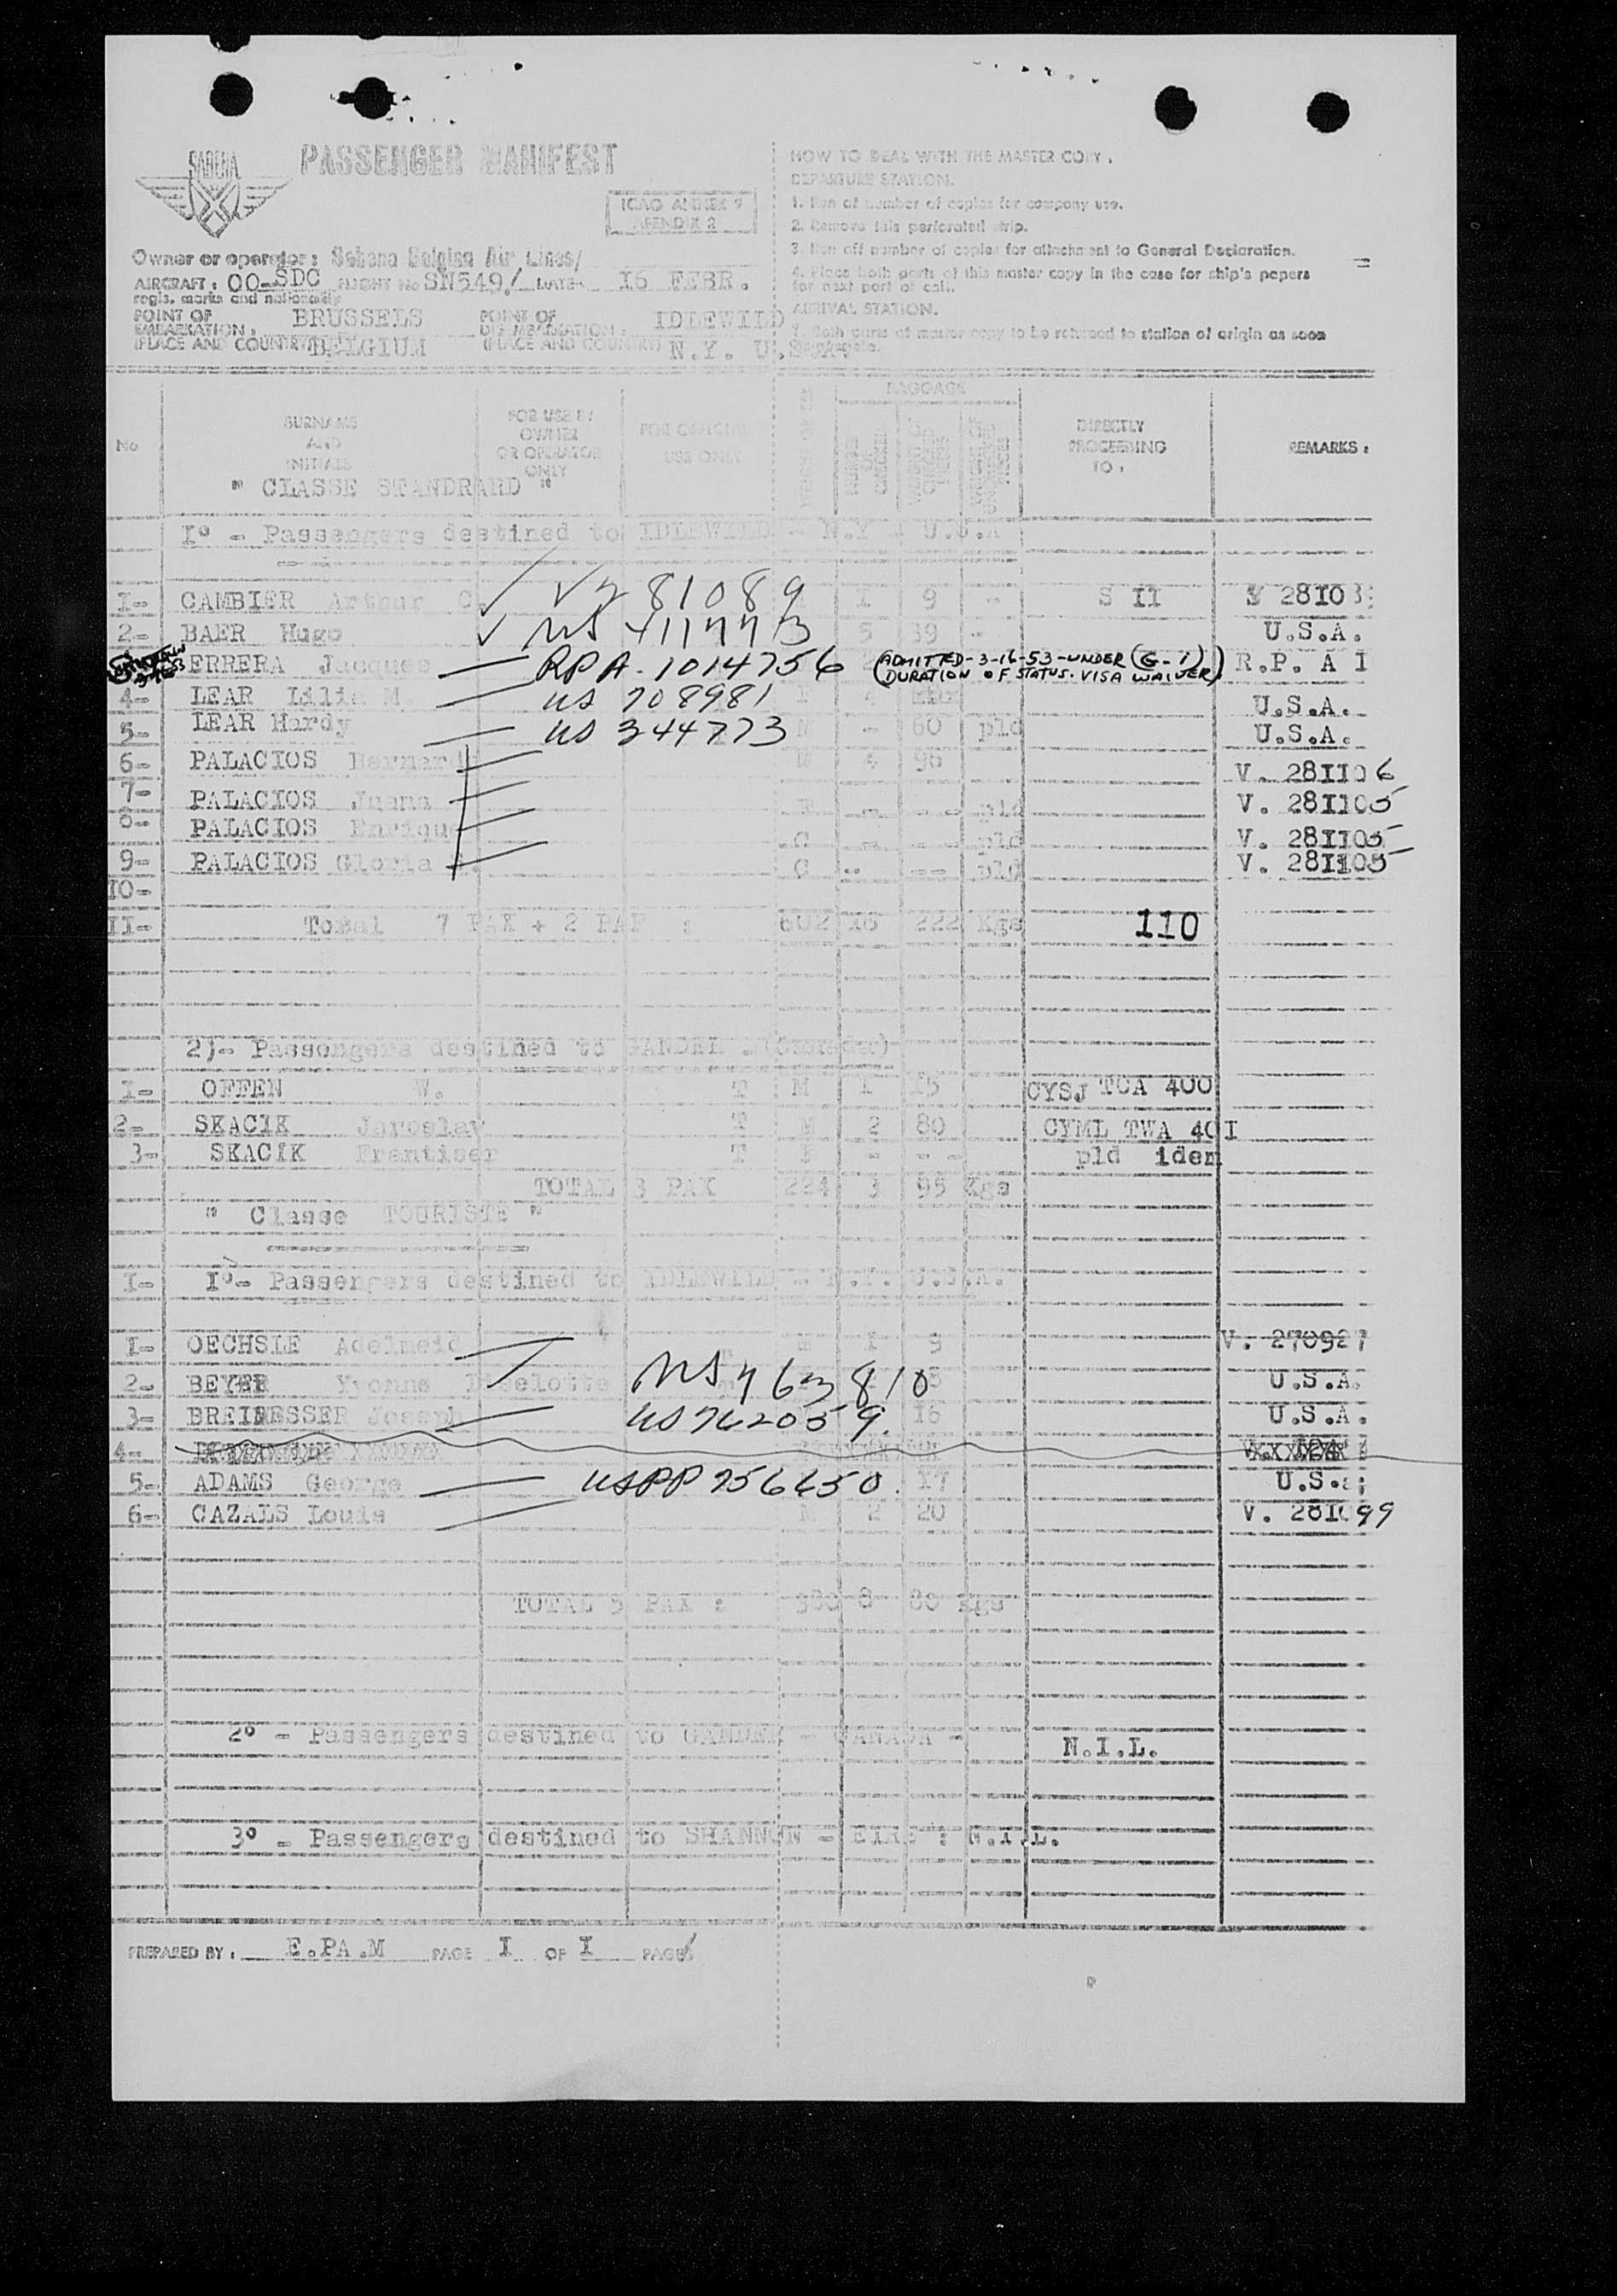 SABENA
PASSENGER MANIFEST
ICAO ANNEX 9
APENDIX 2
Owner or operator : Sabena Belgian Air Lines/
AIRCRAFT : OO-SDC FLIGHT No SN549/ DATE 16 FEBR.
regis. marks and nationality
POINT OF EMBARKATION : BRUSSELS POINT OF DISEMBARKATION : IDLEWILD
(PLACE AND COUNTRY) BELGIUM (PLACE AND COUNTRY) N.Y. U.S.A.
HOW TO DEAL WITH THE MASTER COPY.
DEPARTURE STATION.
1. Run of number of copies for company use.
2. Remove this perforated strip.
3. Run off number of copies for attachment to General Declaration.
4. Place both parts of this master copy in the case for ship's papers
for next port of call.
ARRIVAL STATION.
Both parts of master copy to be returned to station of origin as soon
No SURNAME AND INITIALS FOR USE BY OWNER OR OPERATOR ONLY FOR OFFICIAL USE ONLY BAGGAGE DIRECTLY PROCEEDING TO : REMARKS :
" CLASSE STANDRARD "
Iº - Passengers destined to IDLEWILD - N.Y U.S.A
I- CAMBIER Arthur C ✓ V281089 I 9 - S II 28103
2- BAER Hugo ✓ 5 39 - U.S.A.
ERRERA Jacques RPA-1014756 (ADMITTED-3-16-53-UNDER (G-1) R.P. A I
DURATION OF STATUS. VISA WAIVER)
4- LEAR Lilia M. US 708981 U.S.A.
5- LEAR Hardy US 344773 M - 60 pld U.S.A.
6- PALACIOS Bernard M 4 96 V. 281106
7- PALACIOS Juana F - - - pld V. 281105
8- PALACIOS Enrique C - - - pld V. 281105
9- PALACIOS Gloria C -- -- pld V. 281105
10-
II- Total 7 PAX + 2 PAF : 602 16 222 Kgs 110
2)- Passengers destined to GANDER
I- OFFEN W. T M I 15 CYSJ TCA 400
2- SKACIK Jaroslav T M 2 80 CYML TWA 40I
3- SKACIK Frantiser T F - - - pld idem
TOTAL 3 PAX 224 3 95 Kgs
" Classe TOURISTE "
I- Iº- Passengers destined to IDLEWILD - N.Y. U.S.A.
I- OECHSLE Adelheid I 9 V. 270927
2- BEYER Yvonne Liselotte U.S.A.
3- BREINESSER Joseph US762059. 16 U.S.A.
4-
5- ADAMS George USPP256450. 17 U.S.A;
6- CAZALS Louis M 2 20 V. 281099
TOTAL 5 PAX : 380 8 80 Kgs
2º - Passengers destined to GANDER - CANADA - N.I.L.
3º - Passengers destined to SHANNON - EIRE : N.I.L.
PREPARED BY : E.PA.M PAGE I OF I PAGES